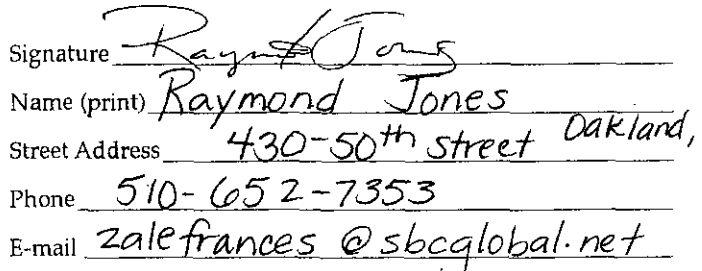 Signature Raymond Jones
Name (print) Raymond Jones
Street Address 430-50th street Oakland,
Phone 510-652-7353
E-mail zalefrances @sbcglobal.net